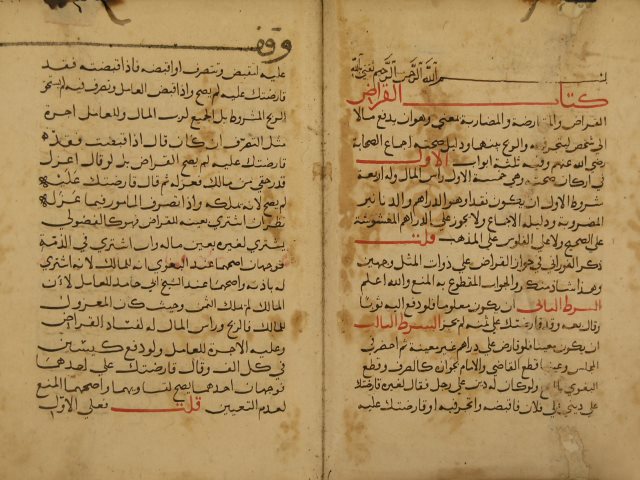 بسم الله الرحمن الرحيم
كتاب القراض
القراض والمقارضة والمضاربة بمعنى وهو ان يدفع مالا
الى شخص ليتجر فيه والربح بينهما ودليل صحته اجماع الصحابة
رضي الله عنهم وفيه ثلثة ابواب الاول
في اركان صحته وهي خمسة الاول راس المال وله اربعة
شروط الاول ان يكون نقدا وهو الدراهم والدنانير
المضروبة ودليله الاجماع ولا يجوز على الدراهم المغشوشة
على الصحيح ولا على الفلوس على المذهب قلت
ذكر الفوراني في جواز القراض على ذوات المثل وجهين
وهذا شاذ منكر والصواب المقطوع به المنع والله اعلم
الشرط الثاني ان يكون معلوما فلو دفع اليه ثوبا
وقال بعه وقد قارضتك على ثمنه لم يجز الشرط الثالث
ان يكون معينا فلو قارض على دراهم غير معينة ثم احضر في
المجلس وعينها قطع القاضي والامام بجوازه كالصرف وقطع
البغوي بالمنع ولو كان له دين على رجل فقال لغيره قارضتك
على ديني على فلان فاقبضه واتجر فيه او قارضتك عليه
وقف
عليه لتقبض وتتصرف او اقبضه فاذا قبضته فقد
قارضتك عليه لم يصح واذا قبض العامل وتصرف فيه لم يستحق
الربح المشروط بل الجميع لرب المال وللعامل اجرة
مثل التصرف ان كان قال اذا قبضت فقد
قارضتك عليه لم يصح القراض بل لو قال اعزل
قدر حقي من مالك فعزله ثم قال قارضتك عليه
لم يصح لانه لم يملكه واذا تصرف المامور فيما عزله
نظر ان اشترى بعينه للقراض فهو كالفضولي
يشتري لغيره بعين ماله وان اشترى في الذمة
فوجهان اصحهما عند البغوي انه للمالك لانه اشترى
له باذنه واصحهما عند الشيخ ابي حامد للعامل لان
المالك لم يملك الثمن وحيث كان المعزول
للمالك فالربح وراس المال له لفساد القراض
وعليه الاجرة للعامل ولو دفع كيسين
في كل الف وقال قارضتك على احدهما
فوجهان احدهما يصح لتساويهما واصحهما المنع
لعدم التعيين قلت فعلى الاول